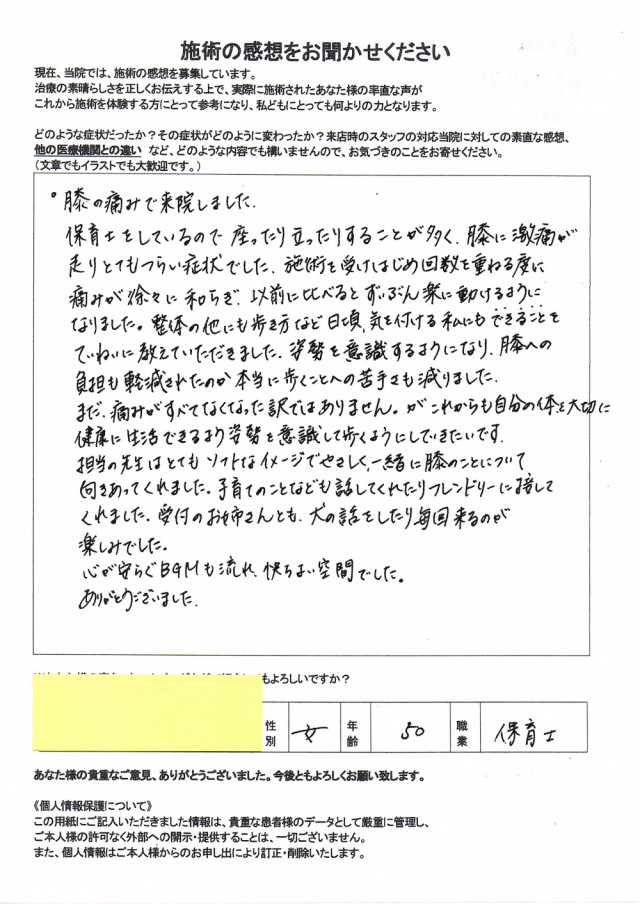 施術の感想をお聞かせください
現在、当院では、施術の感想を募集しています。
治療の素晴らしさを正しくお伝えする上で、実際に施術されたあなた様の率直な声が
これから施術を体験する方にとって参考になり、私どもにとっても何よりの力となります。
どのような症状だったか？その症状がどのように変わったか？来店時のスタッフの対応当院に対しての素直な感想、
他の医療機関との違い など、どのような内容でも構いませんので、お気づきのことをお寄せください。
（文章でもイラストでも大歓迎です。）
°膝の痛みで来院しました.
保育士をしているので座ったり立ったりすることが多く、膝に激痛が
走りとてもつらい症状でした. 施術を受けはじめ回数を重ねる度に
痛みが徐々に和らぎ、以前に比べるとずいぶん楽に動けるように
なりました。整体の他にも歩き方など日頃、気を付ける私にもできることを
ていねいに教えていただきました. 姿勢を意識するようになり、膝への
負担も軽減されたのか本当に歩くことへの苦手さも減りました.
まだ、痛みがすべてなくなった訳ではありません。がこれからも自分の体を大切に
健康に生活できるよう姿勢を意識して歩くようにしていきたいです.
担当の先生はとてもソフトなイメージでやさしく、一緒に膝のことについて
向きあってくれました. 子育てのことなども話してくれたりフレンドリーに接して
くれました. 受付のお姉さんとも、犬の話をしたり毎回来るのが
楽しみでした.
心が安らぐBGMも流れ、快ちよい空間でした。
ありがとうございました.
もよろしいですか？
性別 女 年齢 50 職業 保育士
あなた様の貴重なご意見、ありがとうございました。今後ともよろしくお願い致します。
《個人情報保護について》
この用紙にご記入いただきました情報は、貴重な患者様のデータとして厳重に管理し、
ご本人様の許可なく外部への開示・提供することは、一切ございません。
また、個人情報はご本人様からのお申し出により訂正・削除いたします。